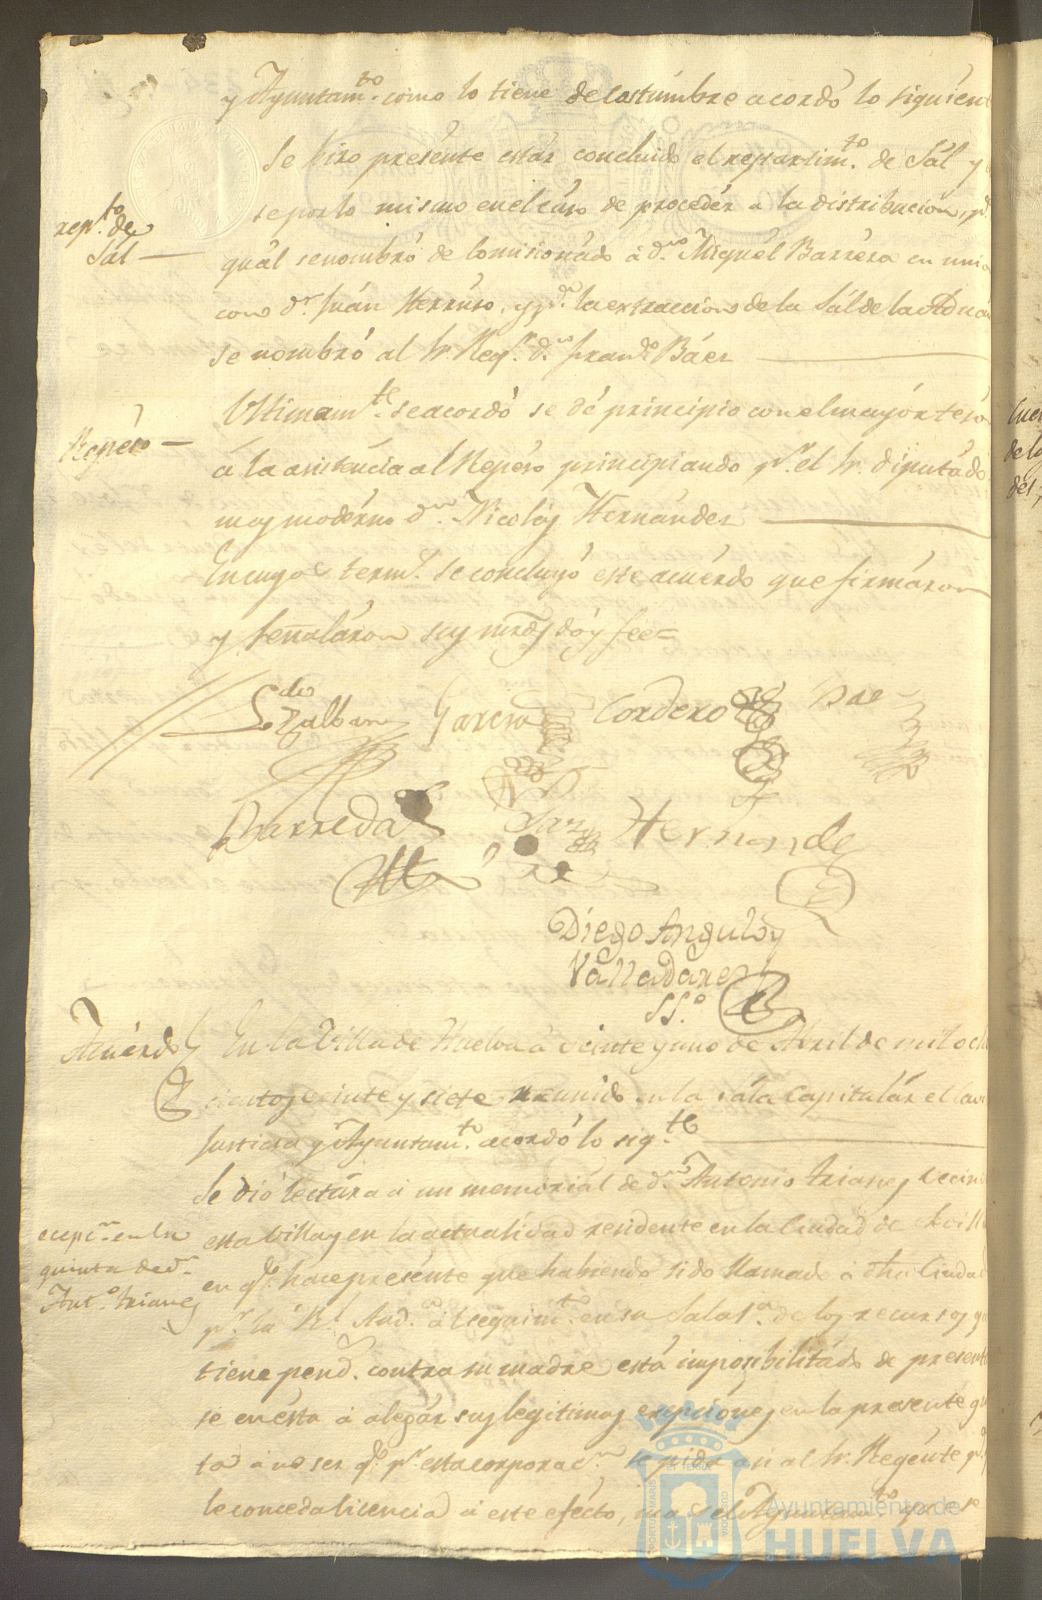 y Ayuntam.to como lo tiene de costúmbre acordó lo siguien
Se hizo presénte estár concluido el repartim.to de Sál y
rep.to de
Sál
se por lo mismo en el cáso de procedér a la distribución, p.a
quál se nombró de Comisionádo á d.n Miguél Barréra en unió
con d.n Juán Herréro, y p.a la extraccion de la Sál de la Aduá
se nombró al Sr. Reg.r d.n Fran.co Báez
Ultimam.te se acordó se dé principio con el mayór tesón
Repéso
á la asisténcia al Repéso principiando p.r el Sr. diputádo
mas modérno d.n Nicolás Hernández
En cuyos term.s se concluyó este acuérdo que firmáron
y señaláron sus mrds doy fee=
L.do Zalban García Cordero Bae
Barreda Hernande
Diego Angulo y
Valladares
SS.o
Acuérdo
En la Villa de Huelva á veinte y uno de Abril de mil och
cientos veinte y siete reunido en la sála Capitulár el Con
Justicia y Ayuntam.to acordó lo sig.te
Se dió lectúra á un memoriál de d.n Antonio Trianes vecin
esta Villa y en la actualidad residente en la Ciudad de Sevill
ecepc.n en la
quinta de d.n
Ant.o Trianes
en q.e hace presénte que habiendo sido llamado á dha Ciudad
p.r la R.l Aud.a al seguim.to en su Sala 1.a de los recursos q
tiene pend. contra su madre está imposibilitádo de present
se en ésta á alegár sus legitimas excpciónes en la presente qu
ta á no ser q.e p.r esta corporac.n se pida asi al Sr. Regénte p.a
le conceda licencia á este efécto, el Ayuntam.to que se
Ayuntamiento de
HUELVA